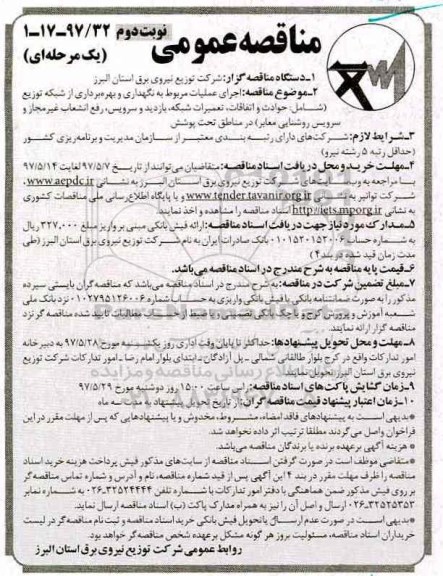 مناقصه عمومی
نوبت دوم
۱-۱۷-۹۷/۳۲
(یک مرحله‌ای)
۱-دستگاه مناقصه گزار: شرکت توزیع نیروی برق استان البرز
۲-موضوع مناقصه: اجرای عملیات مربوط به نگهداری و بهره‌برداری از شبکه توزیع
(شامل حوادث و اتفاقات، تعمیرات شبکه، بازدید و سرویس، رفع انشعاب غیرمجاز و
سرویس روشنایی معابر) در مناطق تحت پوشش
۳-شرایط لازم: شرکت‌های دارای رتبه بندی معتبر از سازمان مدیریت و برنامه‌ریزی کشور
(حداقل رتبه ۵ رشته نیرو)
۴-مهلت خرید و محل دریافت اسناد مناقصه: متقاضیان می‌توانند از تاریخ ۹۷/۵/۷ لغایت ۹۷/۵/۱۴
با مراجعه به وب سایت‌های شرکت توزیع نیروی برق استان البرز به نشانی www.aepdc.ir،
شرکت توانیر به نشانی www.tender.tavanir.org.ir و یا پایگاه اطلاع رسانی ملی مناقصات کشوری
به نشانی http://iets.mporg.ir اسناد مناقصه را مشاهده و اخذ نمایند.
۵-مدارک مورد نیاز جهت دریافت اسناد مناقصه: ارائه فیش بانکی مبنی بر واریز مبلغ ۳۲۷,۰۰۰ ریال
به شماره حساب ۰۱۰۱۵۲۰۱۵۲۰۰۶ بانک صادرات ایران به نام شرکت توزیع نیروی برق استان البرز (طی
مدت زمان قید شده در بند ۴)
۶-قیمت پایه مناقصه به شرح مندرج در اسناد مناقصه می‌باشد.
۷-مبلغ تضمین شرکت در مناقصه: به شرح مندرج در اسناد مناقصه می‌باشد که مناقصه گران بایستی سپرده
مذکور را به صورت ضمانتنامه بانکی یا فیش بانکی واریزی به حساب شماره ۰۱۰۲۷۹۵۱۲۶۰۰۶ نزد بانک ملی
شعبه آموزش و پرورش کرج و یا چک بانکی تضمینی و یا ضبط از محل مطالبات تایید شده مناقصه گر نزد
مناقصه گزار ارائه نمایند.
۸-مهلت و محل تحویل پیشنهادها: حداکثر تا پایان وقت اداری روز یکشنبه مورخ ۹۷/۵/۲۸ به دبیرخانه
امور تدارکات واقع در کرج بلوار طالقانی شمالی - پل آزادگان - ابتدای بلوار امام رضا - امور تدارکات شرکت توزیع
نیروی برق استان البرز تحویل نمایند.
۹-زمان گشایش پاکت‌های اسناد مناقصه: راس ساعت ۱۵:۰۰ روز دوشنبه مورخ ۹۷/۵/۲۹
۱۰-زمان اعتبار پیشنهاد قیمت مناقصه گران: از تاریخ تحویل پیشنهاد به مدت سه ماه
* بدیهی است به پیشنهادهای فاقد امضاء، مشروط، مخدوش و یا پیشنهادهایی که پس از مهلت مقرر در این
فراخوان واصل می‌گردند مطلقا ترتیب اثر داده نخواهد شد.
* هزینه آگهی برعهده برنده یا برندگان مناقصه می‌باشد.
* متقاضی موظف است در صورت گرفتن اسناد مناقصه از سایت‌های مذکور فیش پرداخت هزینه خرید اسناد
مناقصه را ظرف مهلت مقرر در بند ۴ این آگهی پس از قید شماره مناقصه، نام و آدرس و شماره تماس مناقصه گر
بر روی فیش مذکور ضمن هماهنگی با دفتر امور تدارکات با شماره تلفن ۳۲۵۲۴۴۴۴-۰۲۶ به شماره نمابر
۳۲۵۲۵۳۵۳-۰۲۶ ارسال و اصل آن را نیز به همراه مدارک پاکت (ب) اسناد مناقصه ارسال نماید.
* بدیهی است در صورت عدم ارسال یا تحویل فیش بانکی خرید اسناد مناقصه و ثبت نام مناقصه گر در لیست
خریداران اسناد مناقصه، مسئولیت بروز هر گونه مشکل برعهده شخص مناقصه گر خواهد بود.
روابط عمومی شرکت توزیع نیروی برق استان البرز